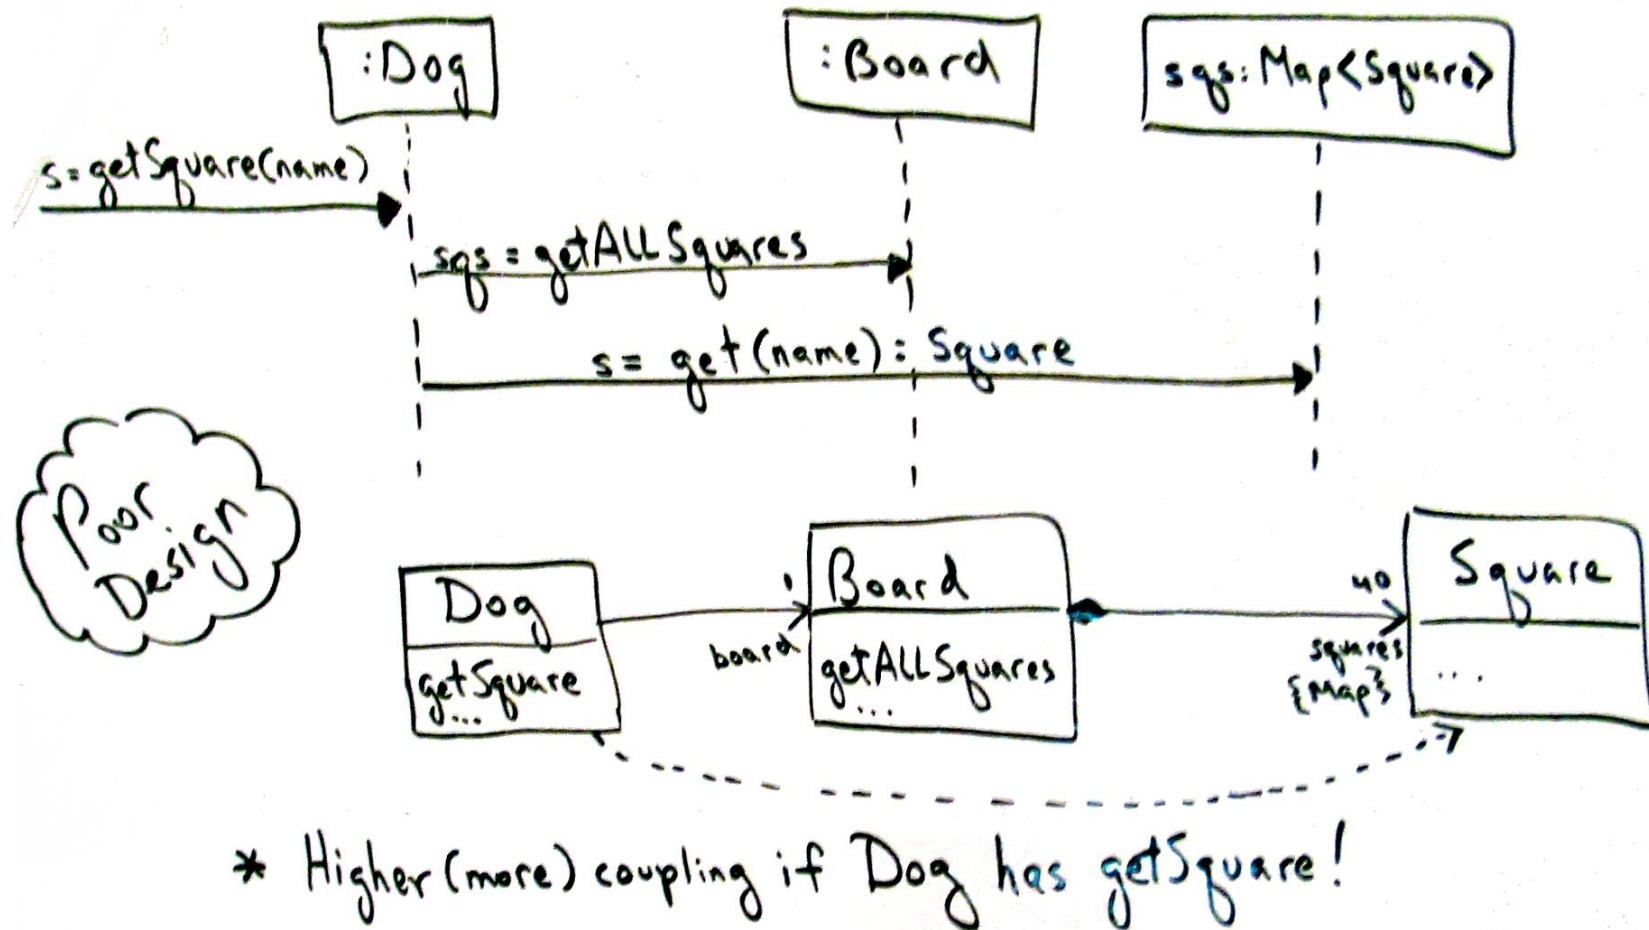 :Dog
:Board
sqs: Map<Square>
s=getSquare(name)
sqs = getALLSquares
s= get(name): Square
Poor
Design
Dog
getSquare
...
1
board
Board
getALLSquares
...
40
squares
{Map}
Square
...
* Higher (more) coupling if Dog has getSquare!